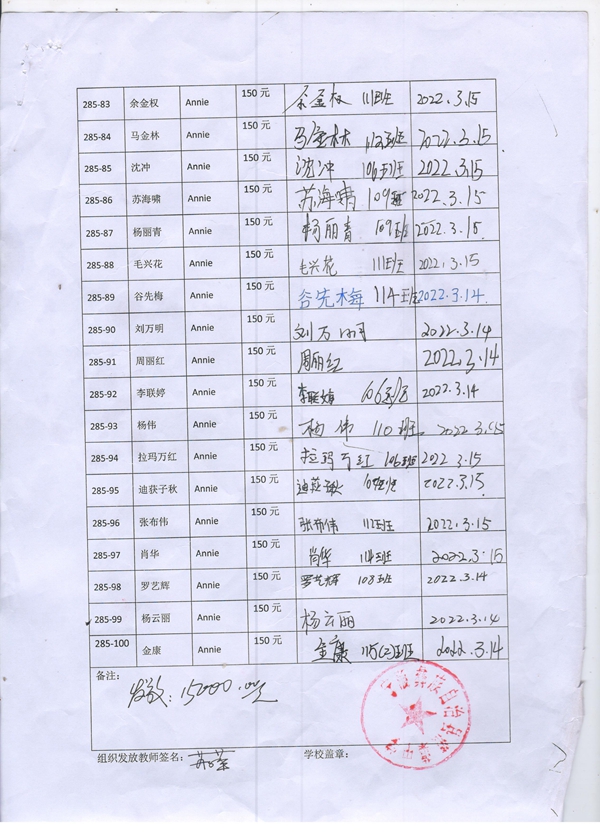 285-83 余金权 Annie 150 元 余金权 111班 2022.3.15
285-84 马金林 Annie 150 元 马金林 112班 2022.3.15
285-85 沈冲 Annie 150 元 沈冲 106班 2022.3.15
285-86 苏海啸 Annie 150 元 苏海啸 109班 2022.3.15
285-87 杨丽青 Annie 150 元 杨丽青 109班 2022.3.15
285-88 毛兴花 Annie 150 元 毛兴花 111班 2022.3.15
285-89 谷先梅 Annie 150 元 谷先梅 114班 2022.3.14
285-90 刘万明 Annie 150 元 刘万明 2022.3.14
285-91 周丽红 Annie 150 元 周丽红 2022.3.14
285-92 李联婷 Annie 150 元 李联婷 106班 2022.3.14
285-93 杨伟 Annie 150 元 杨伟 110班 2022.3.15
285-94 拉玛万红 Annie 150 元 拉玛万红 106班 2022 3.15
285-95 迪获子秋 Annie 150 元 2022.3.15
285-96 张布伟 Annie 150 元 张布伟 112班 2022.3.15
285-97 肖华 Annie 150 元 肖华 114班 2022.3.15
285-98 罗艺辉 Annie 150 元 罗艺辉 108班 2022.3.14
285-99 杨云丽 Annie 150 元 杨云丽 2022.3.14
285-100 金康 Annie 150 元 金康 115(2)班 2022.3.14
备注:
发放: 15000.00元
组织发放教师签名: 学校盖章: